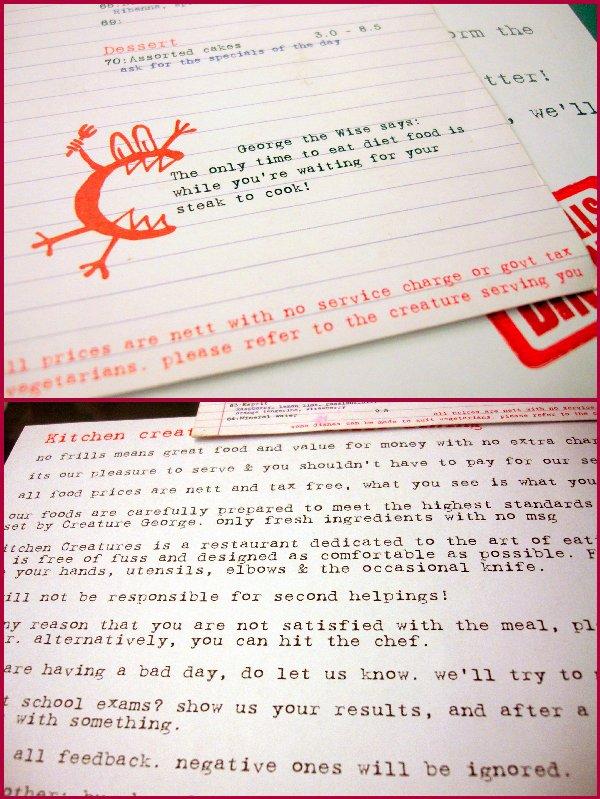 Ribenna,
69:
Dessert
70:Assorted cakes 3.0 - 8.5
ask for the specials of the day
George the Wise says:
The only time to eat diet food is
while you're waiting for your
steak to cook!
ll prices are nett with no service charge or govt tax
vegetarians. please refer to the creature serving you
orm the
tter!
, we'll
64:Mineral Water 0.8
all prices are nett with no service
some dishes can be made to suit vegetarians. please refer to the
Kitchen creat
no frills means great food and value for money with no extra char
its our pleasure to serve & you shouldn't have to pay for our se
all food prices are nett and tax free, what you see is what you
our foods are carefully prepared to meet the highest standards
set by Creature George. only fresh ingredients with no msg
itchen Creatures is a restaurant dedicated to the art of eat
is free of fuss and designed as comfortable as possible. F
your hands, utensils, elbows & the occasional knife.
ill not be responsible for second helpings!
ny reason that you are not satisfied with the meal, pl
r. alternatively, you can hit the chef.
are having a bad day, do let us know. we'll try to
t school exams? show us your results, and after a
with something.
all feedback. negative ones will be ignored.